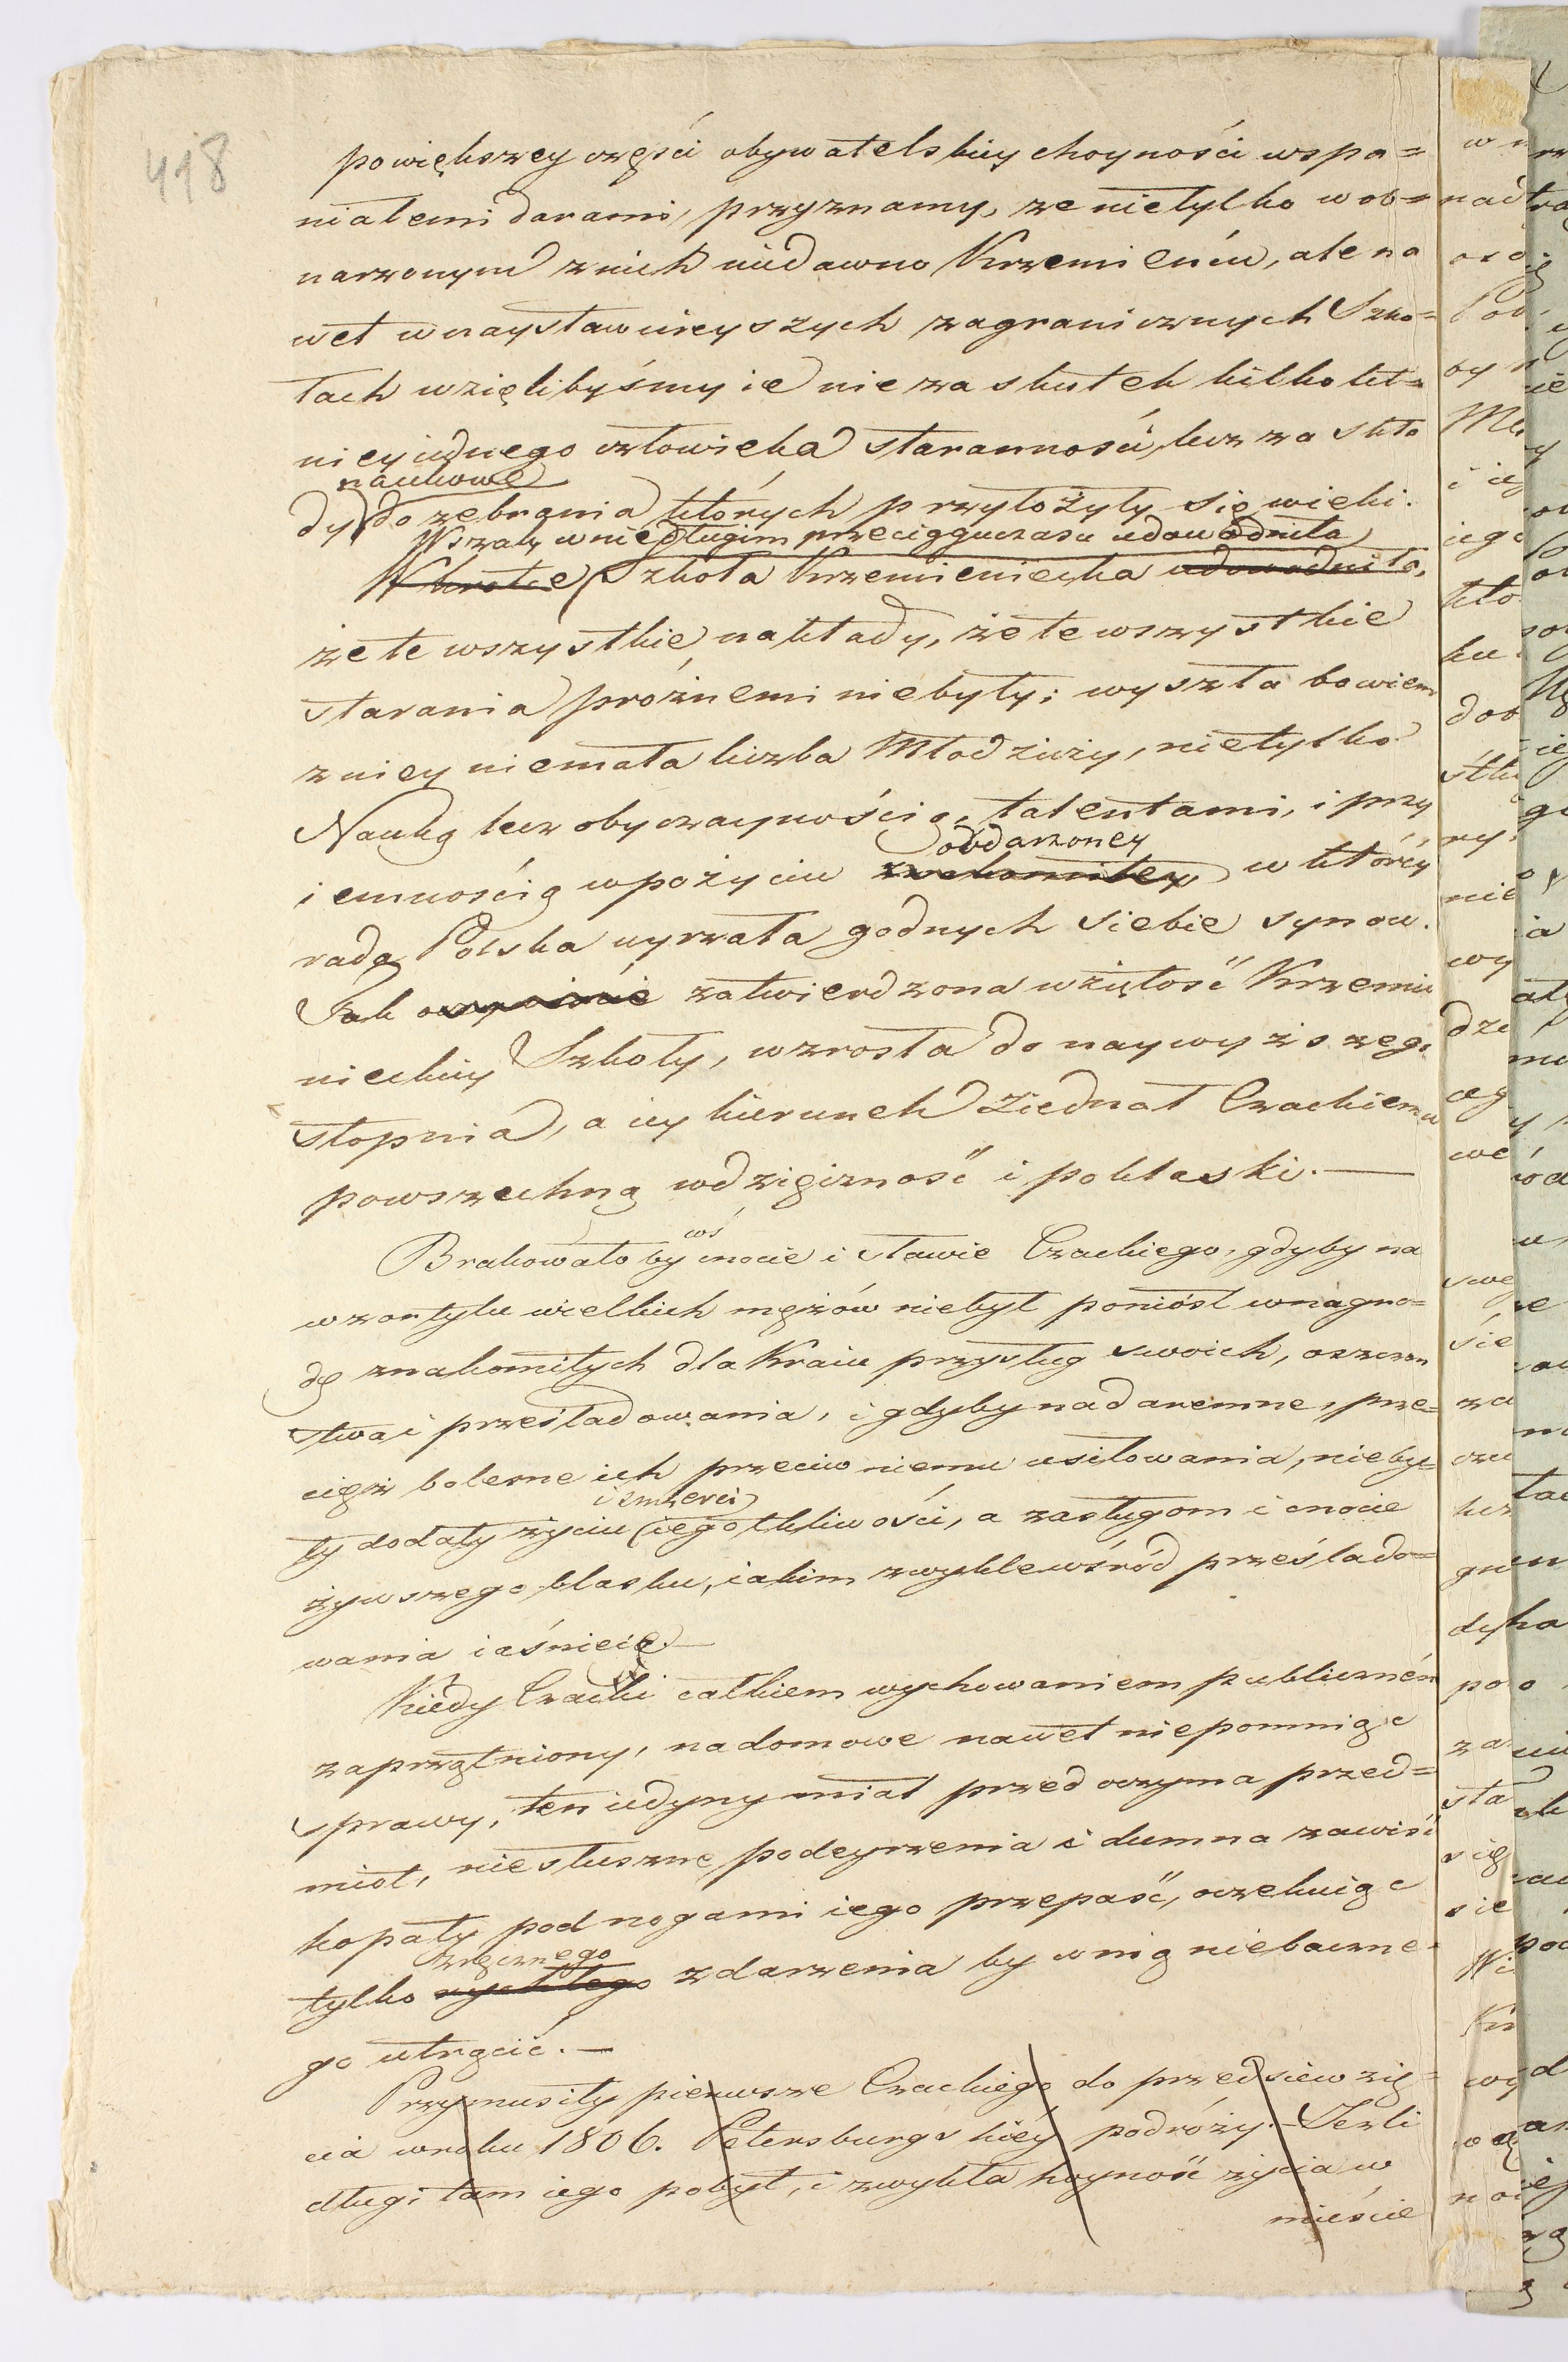 418
powiększey części obywatelskiey choyności wspa=
niałemi darami, przyznamy, że nietylko w ob=
narzonym z nich niedawno Krzemieńcu, ale na
wet w naysławnieyszych zagranicznych Szko=
łach wzięlibyśmy ie nie za skutek kilkolet=
niey iednego człowieka staranności, lecz za skła
naukowe
dy do zebrania których przyłożyły się wieki.
Wszakż w niedługim przeciągu czasu udowodniła
Wkrótce Szkoła Krzemieniecka udowodniła,
że te wszystkie nakłady, że te wszystkie
starania próżnemi niebyły; wyszła bowiem
z niey niemała liczba Młodzieży, nietylko
Nauką lecz obyczaynością, talentami, i przy
obdarzoney
iemnością w pożyciu znakomitey w którey
rada Polska uyrzała godnych siebie synow.
Tak zatwierdzona wziętość Krzemie
nieckiey Szkoły, wzrosła do naywyższego
stopnia, a iey kierunek ziednał Czackiemu
powszechną wdzięczność i poklaski. —
coś
Brakowało by cnocie i sławie Czackiego, gdyby na
wzor tylu wielkich mężów niebył poniósł w nagro=
dę znakomitych dla Kraiu przysług swoich, oszczer
stwa i prześladowania, i gdyby nadaremne, prze=
cięż bolesne ich przeciw niemu usiłowania, nieby=
i śmierci
ły dodały życiu iego tkliwości, a zasługom i cnocie
żywszego blasku, iakim zwykle wśród prześlado=
wania iaśnieie. —
Kiedy Czacki całkiem wychowaniem publiczném
zaprzątniony, na domowe nawet niepomniąc
sprawy, ten iedyny miał przed oczyma przed=
miot, niesłuszne podeyrzenia i dumna zawiść
kopały pod nogami iego przepaść, oczekuiąc
zręcznego
tylko rychłego zdarzenia by w nią niebaczne=
go utrącić. —
Przymusiły pierwsze Czackiego do przedsiewzię=
cia w roku 1806. Petersburgskiéy podróży. — Jeżli
długi tam iego pobyt, i zwykła hoyność życia w
mieście